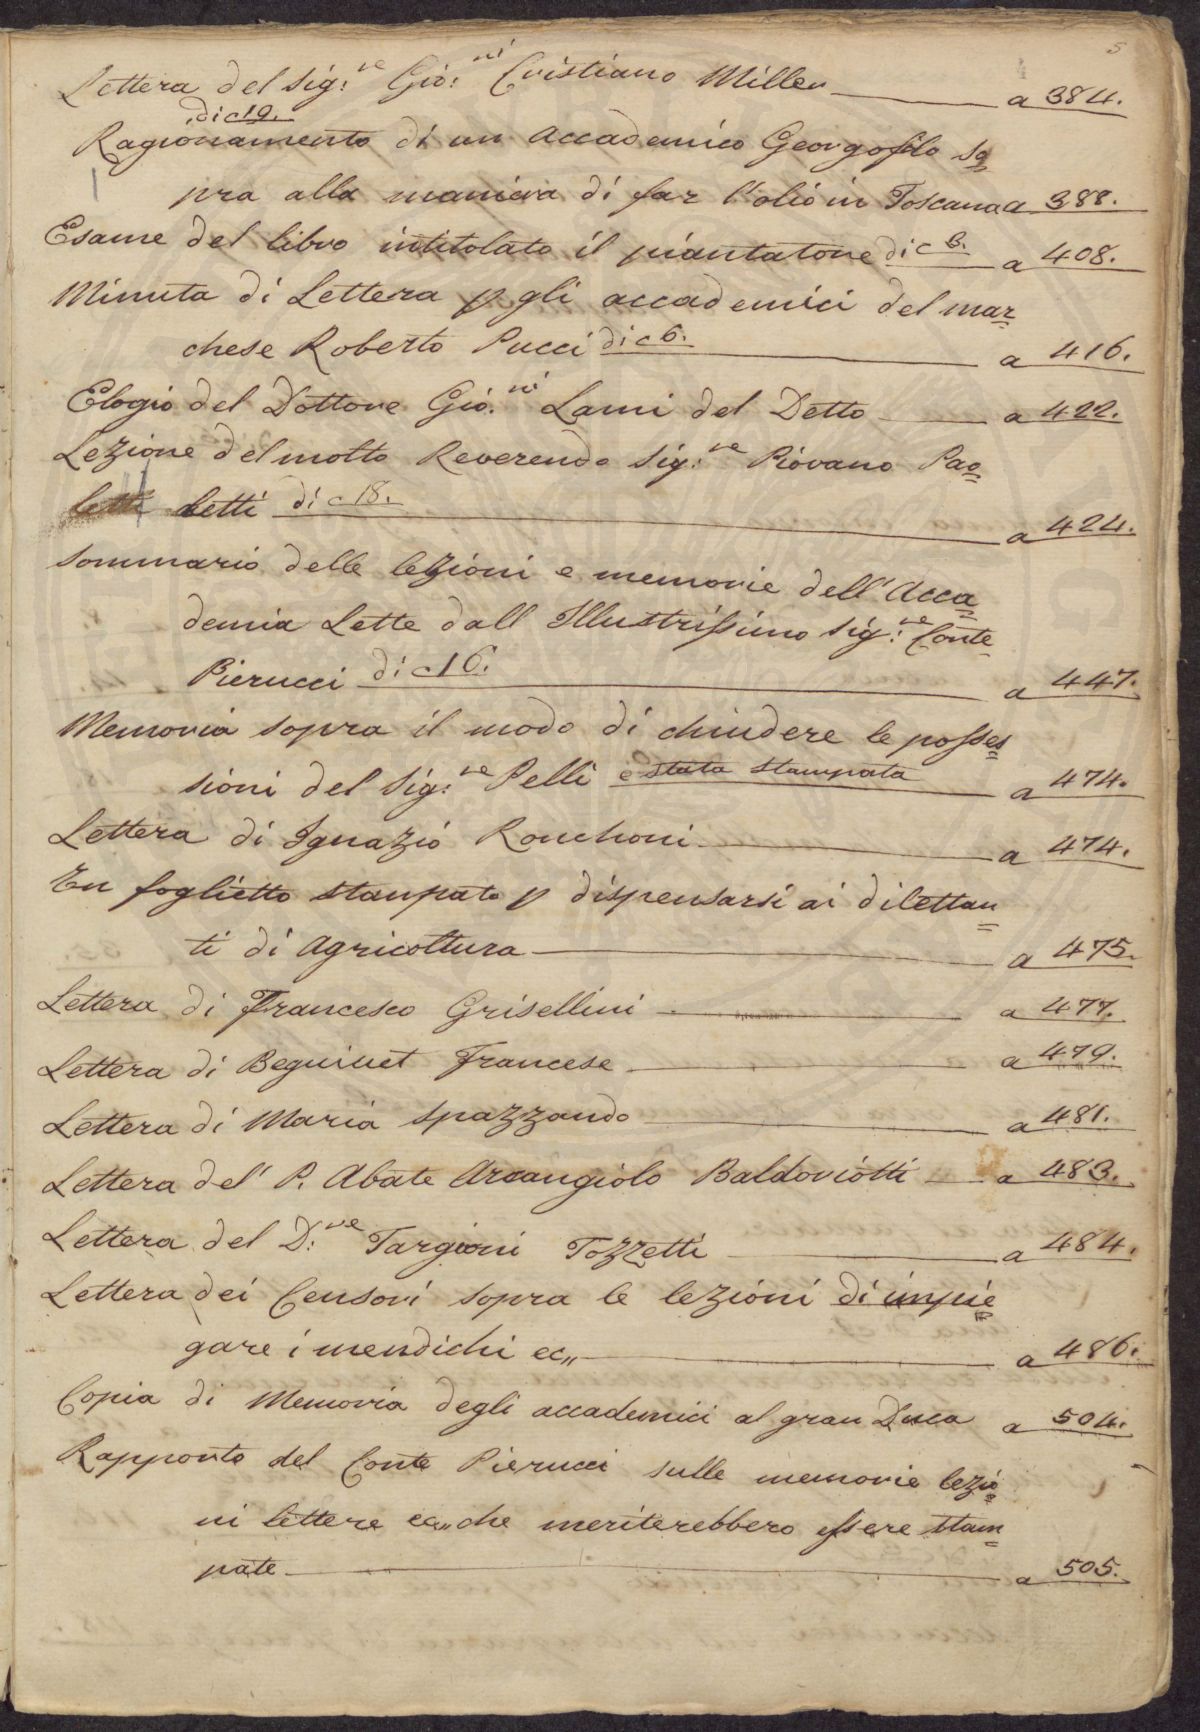 5
Lettera del Sig:re Gio:ni Cristiano Miller a 384.
di c 19.
Ragionamento di un Accademico Georgofilo so=
pra alla maniera di far l'olio in Toscana a 388.
Esame del libro intitolato il piantatore di c 8. a 408.
Minuta di Lettera p gli accademici del mar=
chese Roberto Pucci di c 6. a 416.
Elogio del Dottore Gio.ni Lami del Detto a 422.
Lezione del molto Reverendo Sig:re Piovano Pao=
letti di c 18. a 424.
Sommario delle lezioni e memorie dell'Acca=
demia Lette dall Illustrissimo Sig:re Conte
Pierucci di c 16. a 447.
Memoria sopra il modo di chiudere le posses=
sioni del Sig:re Pelli è stata stampata a 474.
Lettera di Ignazio Ronchoni a 474.
Un foglietto stanpato p dispensarsi ai dilettan=
ti di Agricoltura a 475.
Lettera di Francesco Grisellini a 477.
Lettera di Beguiuet Francese a 479.
Lettera di Maria Spazzando a 481.
Lettera del' P. Abate Arcangiolo Baldoviotti a 483.
Lettera del D:re Targioni Tozzetti a 484.
Lettera dei Censori sopra le lezioni di inpie=
gare i mendichi ec,, a 486.
Copia di Memoria degli accademici al gran Duca a 504.
Rapporto del Conte Pierucci sulle memorie lezio=
ni lettere ec,, che meriterebbero essere stam=
pate a 505.